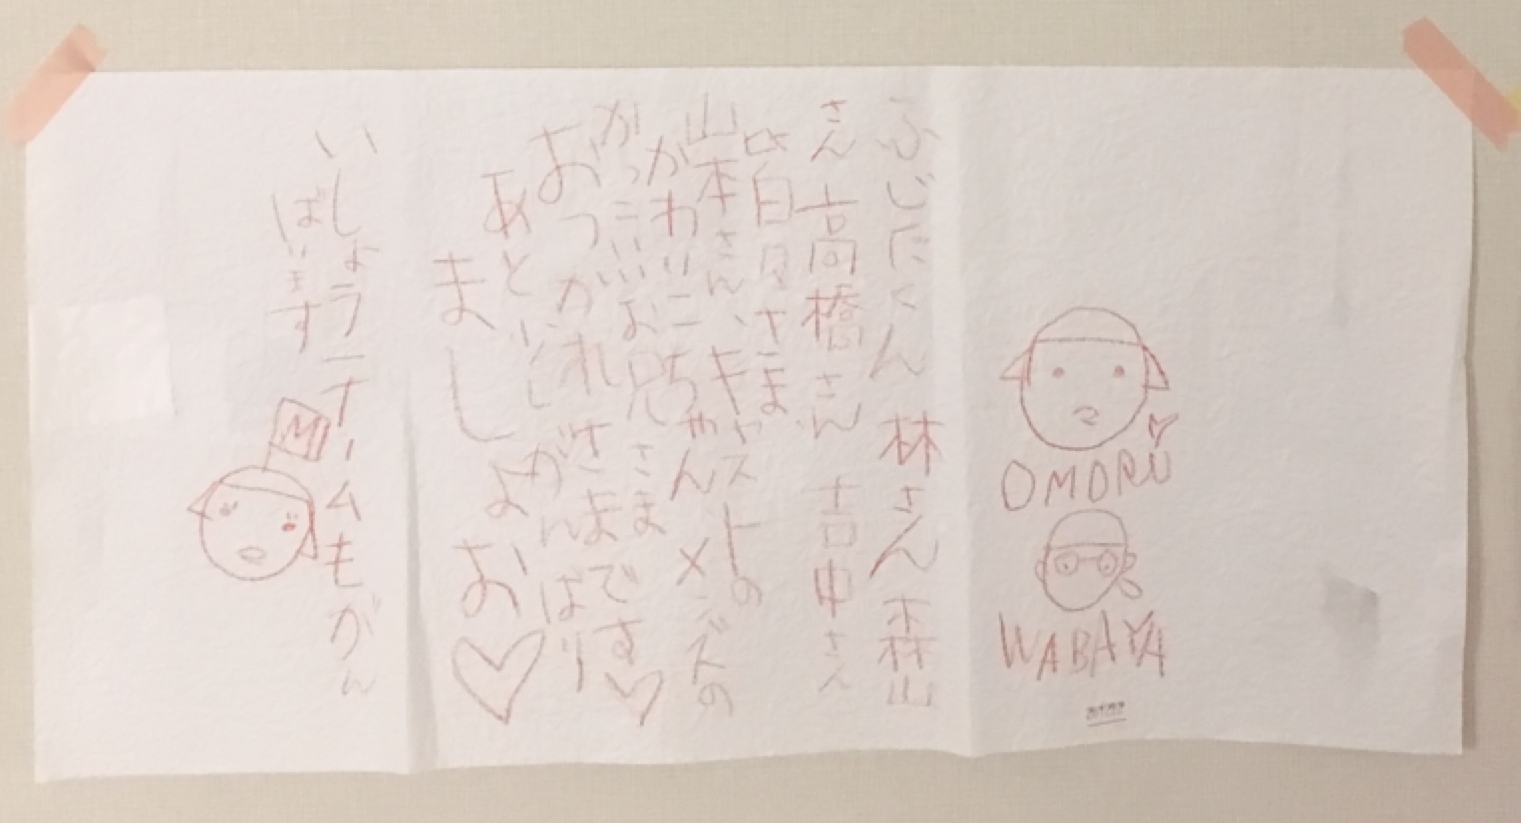 OMORU
WABAYA
ふじたくん 林さん 森山
さん 高橋さん 吉中さん
皆々さま、
山本さん、キャストの
かわいこちゃん メンズの
かっこいいお兄さま
おつかれさまです♡
あと がんばり
ましょお♡
いしょうチームもがん
ばります
M